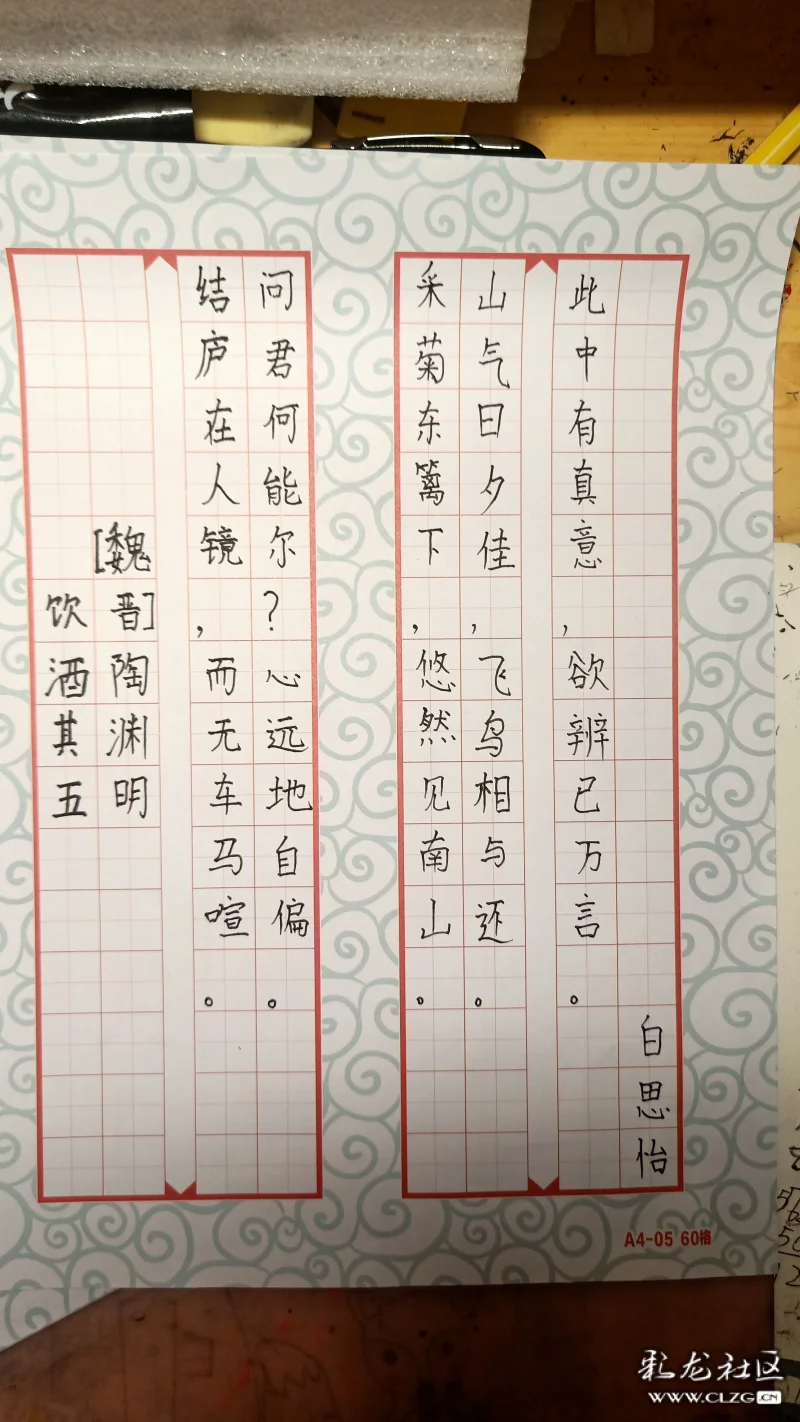 饮酒其五
[魏晋]陶渊明
结庐在人镜，而无车马喧。
问君何能尔？心远地自偏。
采菊东篱下，悠然见南山。
山气日夕佳，飞鸟相与还。
此中有真意，欲辨已万言。
自思怡
A4-05 60格
彩龙社区
WWW.CLZG.CN